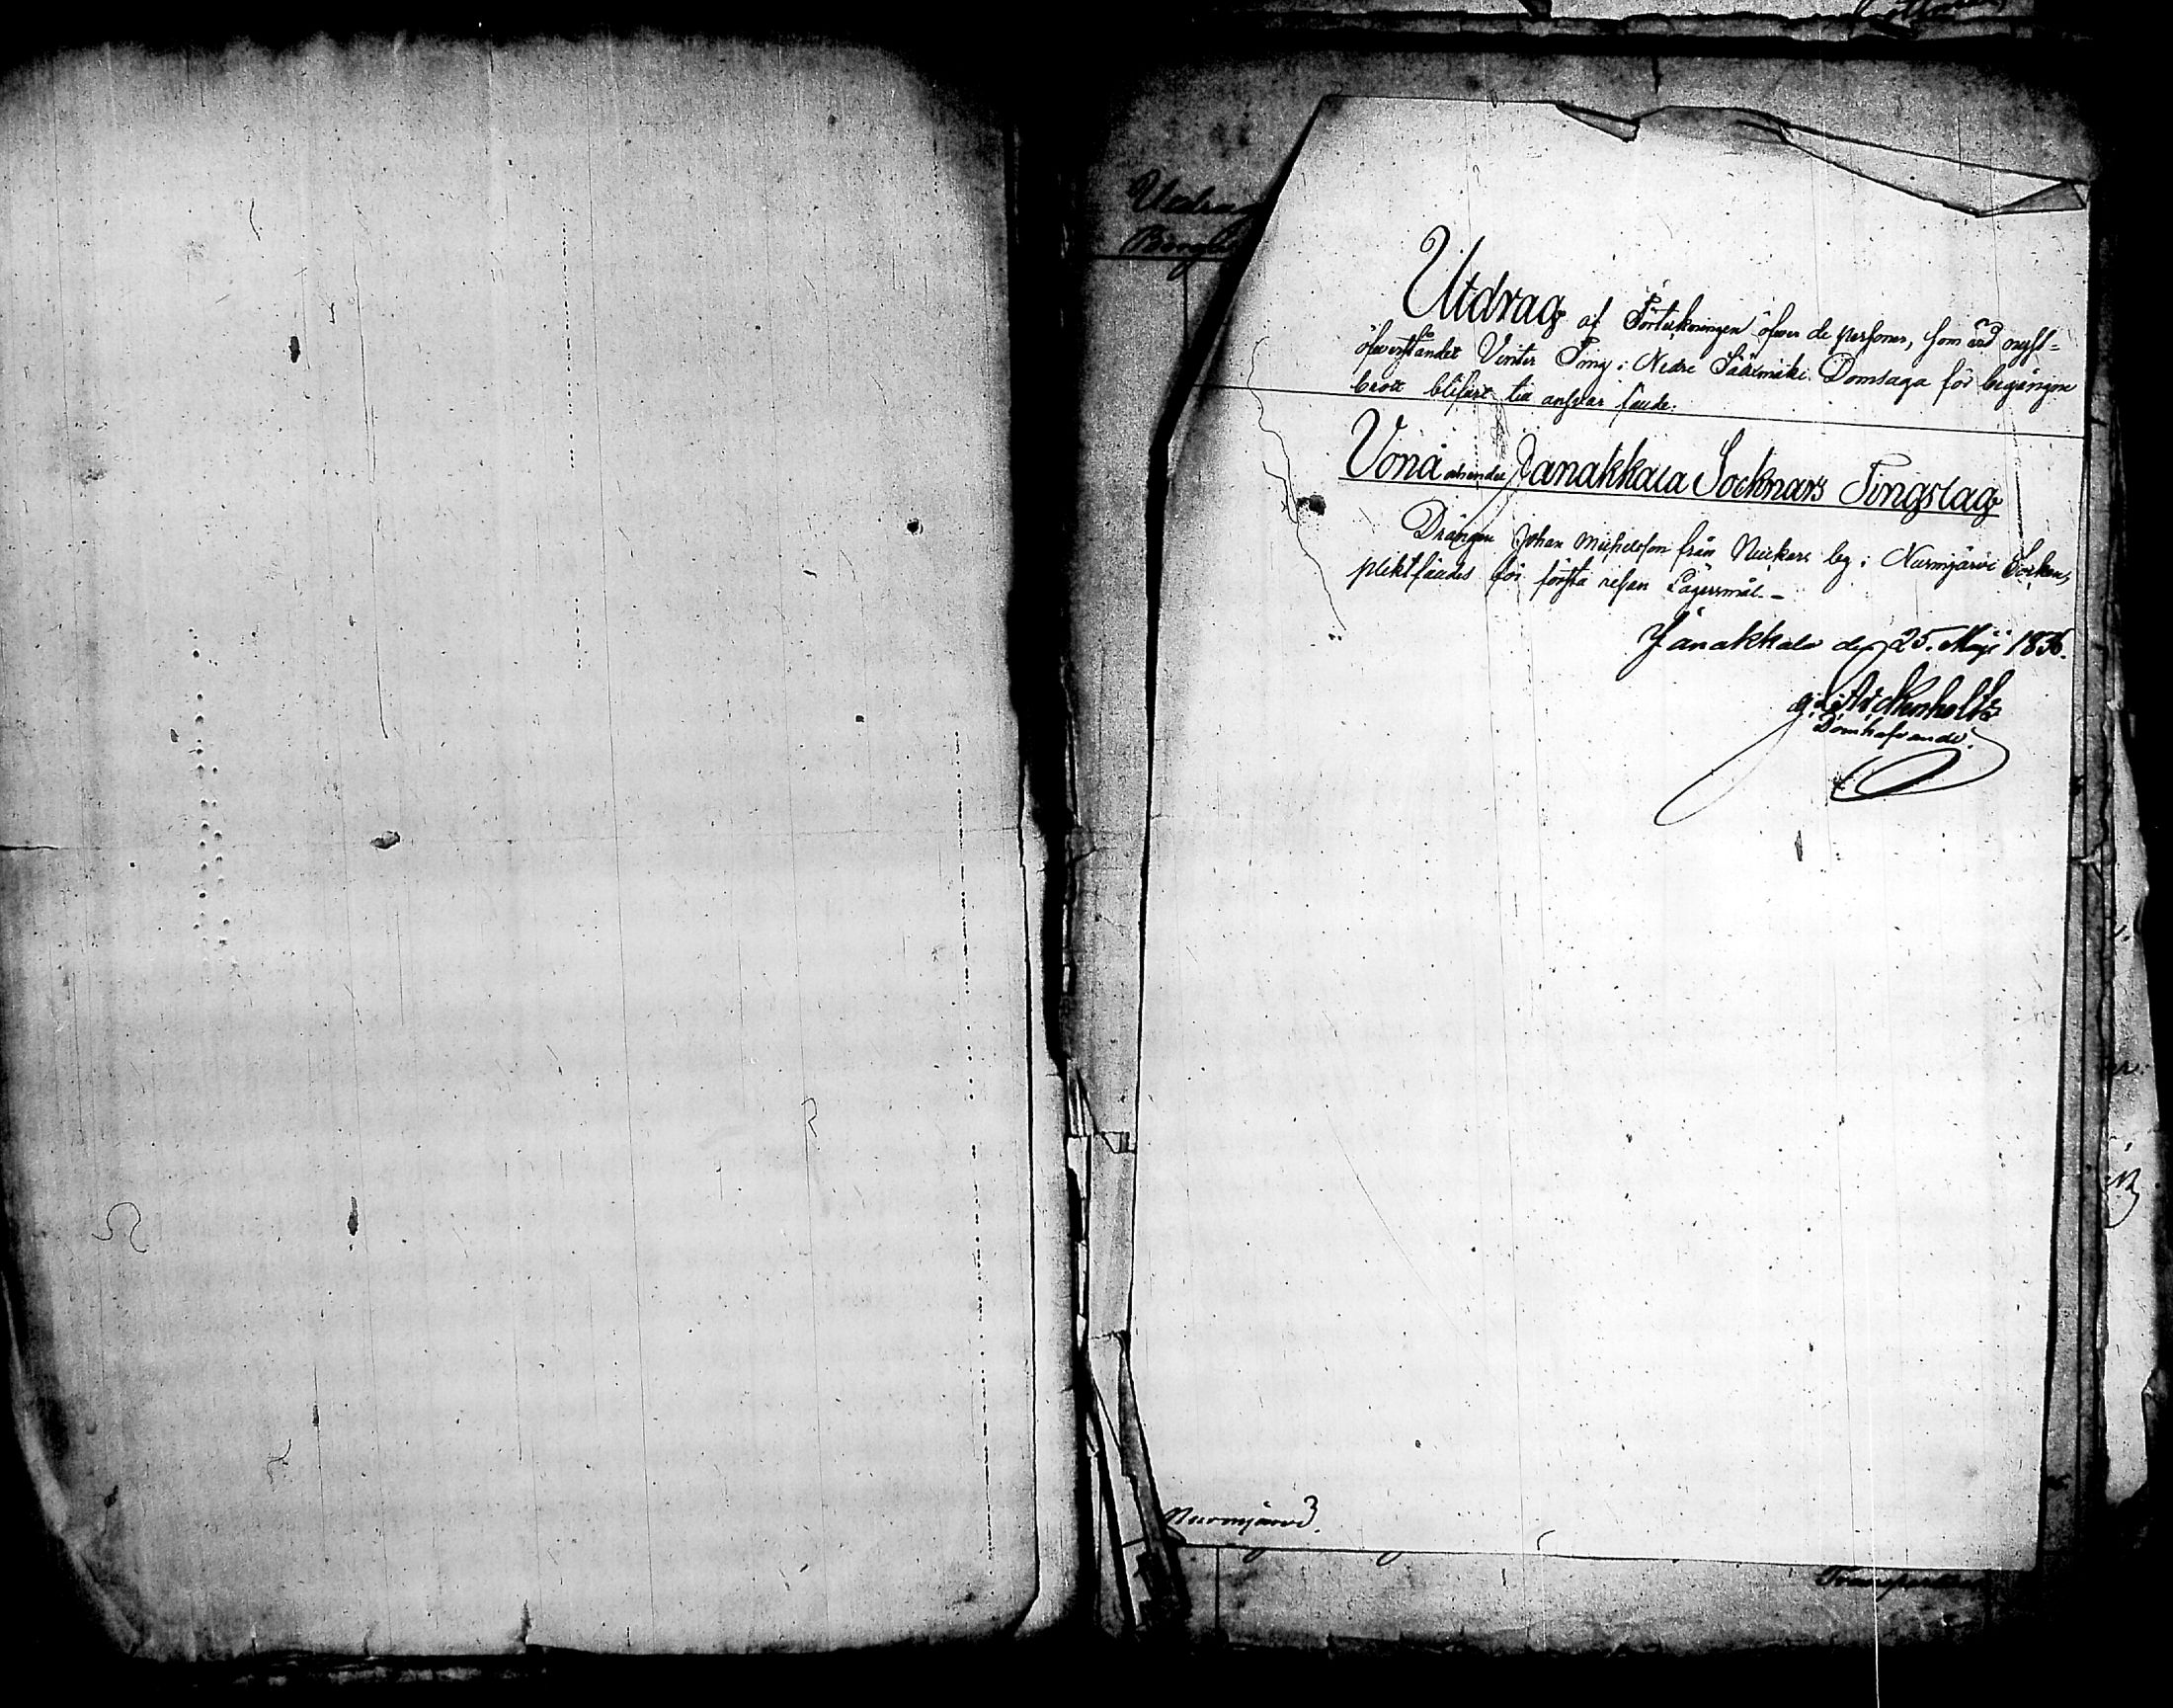 Utdrag
Utdrag af Förteckningen öfver de personer, som vid nyst-
öfverståndet Vinter Ting i Nedre Sääxmäki Domsaga för begångne
brott blifvit till ansvar fälde:
Vånå Janakkala Socknars Tingslag
Drängen Johan Michelsson från by i Nurmijärvi Socken,
pliktfäldes för första resan Lägersmål. –
Janakkala den 25. Maji 1836.
Domhafvande.
Nurmijärvi.